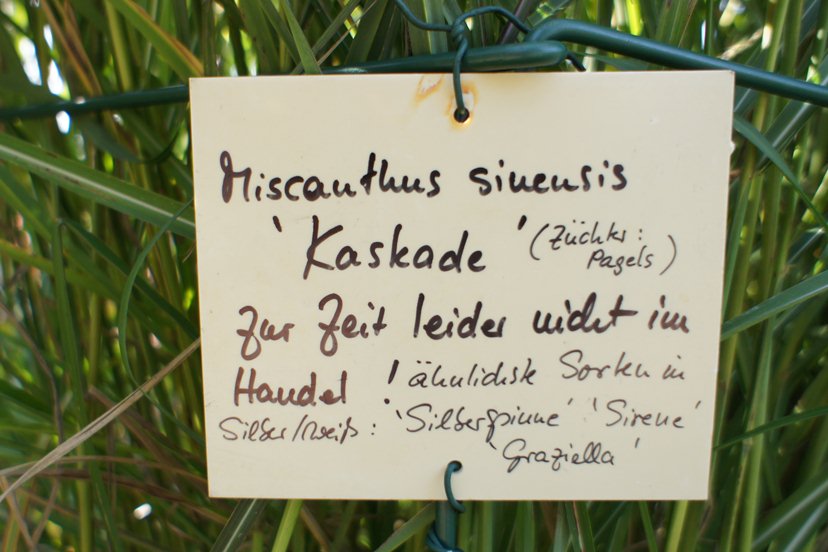 Miscanthus sinensis
'Kaskade' (Züchter: Pagels)
zur Zeit leider nicht im
Handel! ähnlichste Sorten in
Silber/weiß: 'Silberspinne' 'Sirene'
'Graziella'